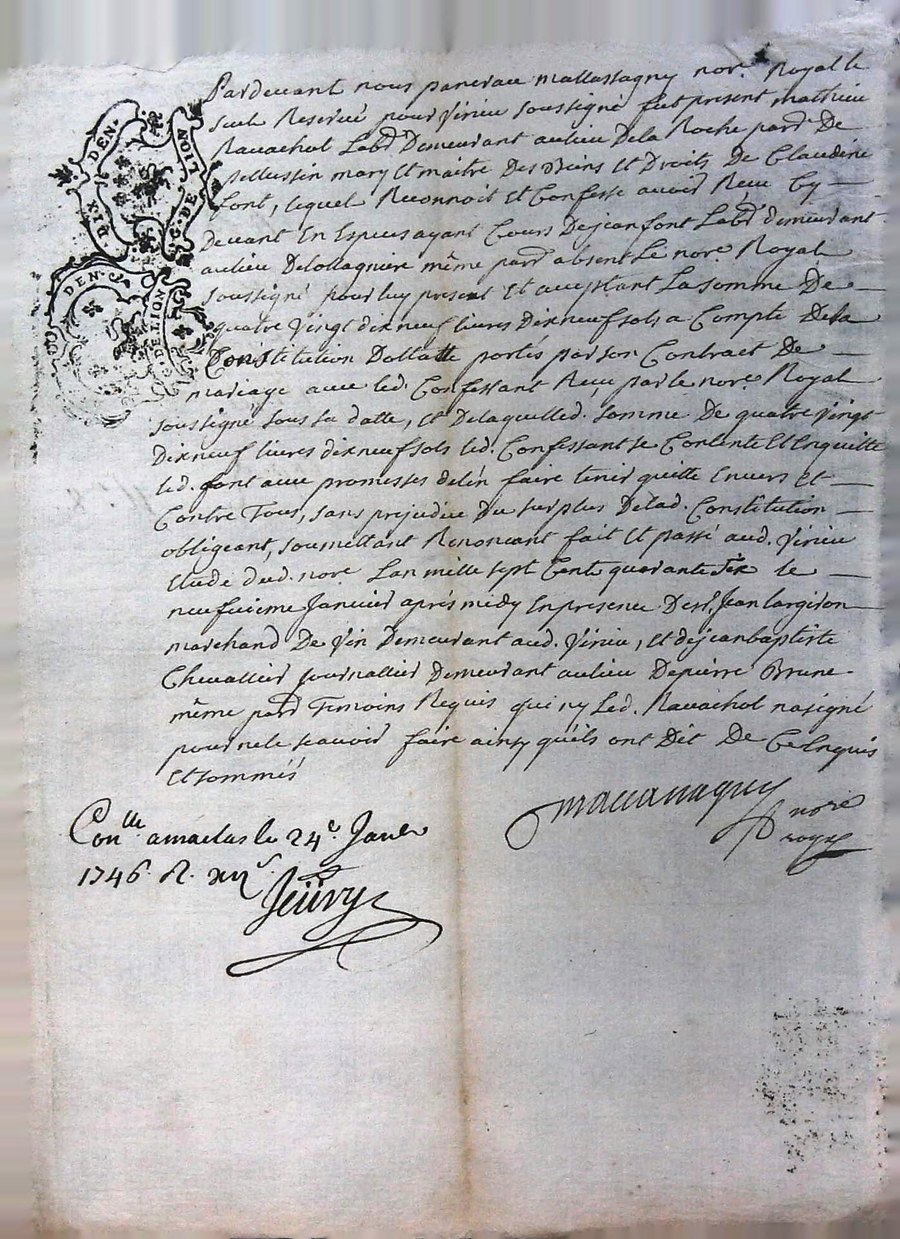 DIX DEN.
G. DE LION
DEN.
DE LION
Pardevant nous pancrau mallassagny nore. Royal le
seul Reservé pour Virieu soussigné fut present mathieu
Ravachol Labr. Demeurant aulieu Dela Roche parr. De
pellussin mary Et maitre Des Biens Et Droits De Claudine
font, lequel Reconnoit Et Confesse avoir Reçu Cy —
Devant En Especes ayant Cours Dejean font Labr. demeurant
aulieu Delollagniere même parr. absent Le nore. Royal
soussigné pour luy present Et acceptant La somme De —
quatre Vingt dix neuf livres Dix neuf sols a Compte Dela
Constitution Dottalle portés par son Contract De —
mariage avec led. Confessant Reçu par le nore. Royal
soussigné sous sa datte, Et Delaquelled. somme De quatre Vingt
Dix neuf livres dix neuf sols led. Confessant se Contente Et Enquitte
led. font avec promesses delen faire tenir quitte Envers Et —
Contre Tous, sans prejudice Du surplus Delad. Constitution —
obligeant, soumettant Renoncant fait Et passé aud. Virieu
Etude dud. nore. Lan mille sept Cent quarante six le —
neufvieme Janvier aprés midy En presence De sr. Jean
marchand De Vin Demeurant aud. Virieu, Et dejean baptiste
Chevallier Journallier Demeurant aulieu Depierre Brune
même parr. Temoins Requis qui ny Led. Ravachol nasigné
pour ne le scavoir faire ainsy quils ont Dit De Ce Enquis
Et sommés
nore
royal
Conlle amaclas le 24e. Janer
1746 R. xiis.
Jeüvry